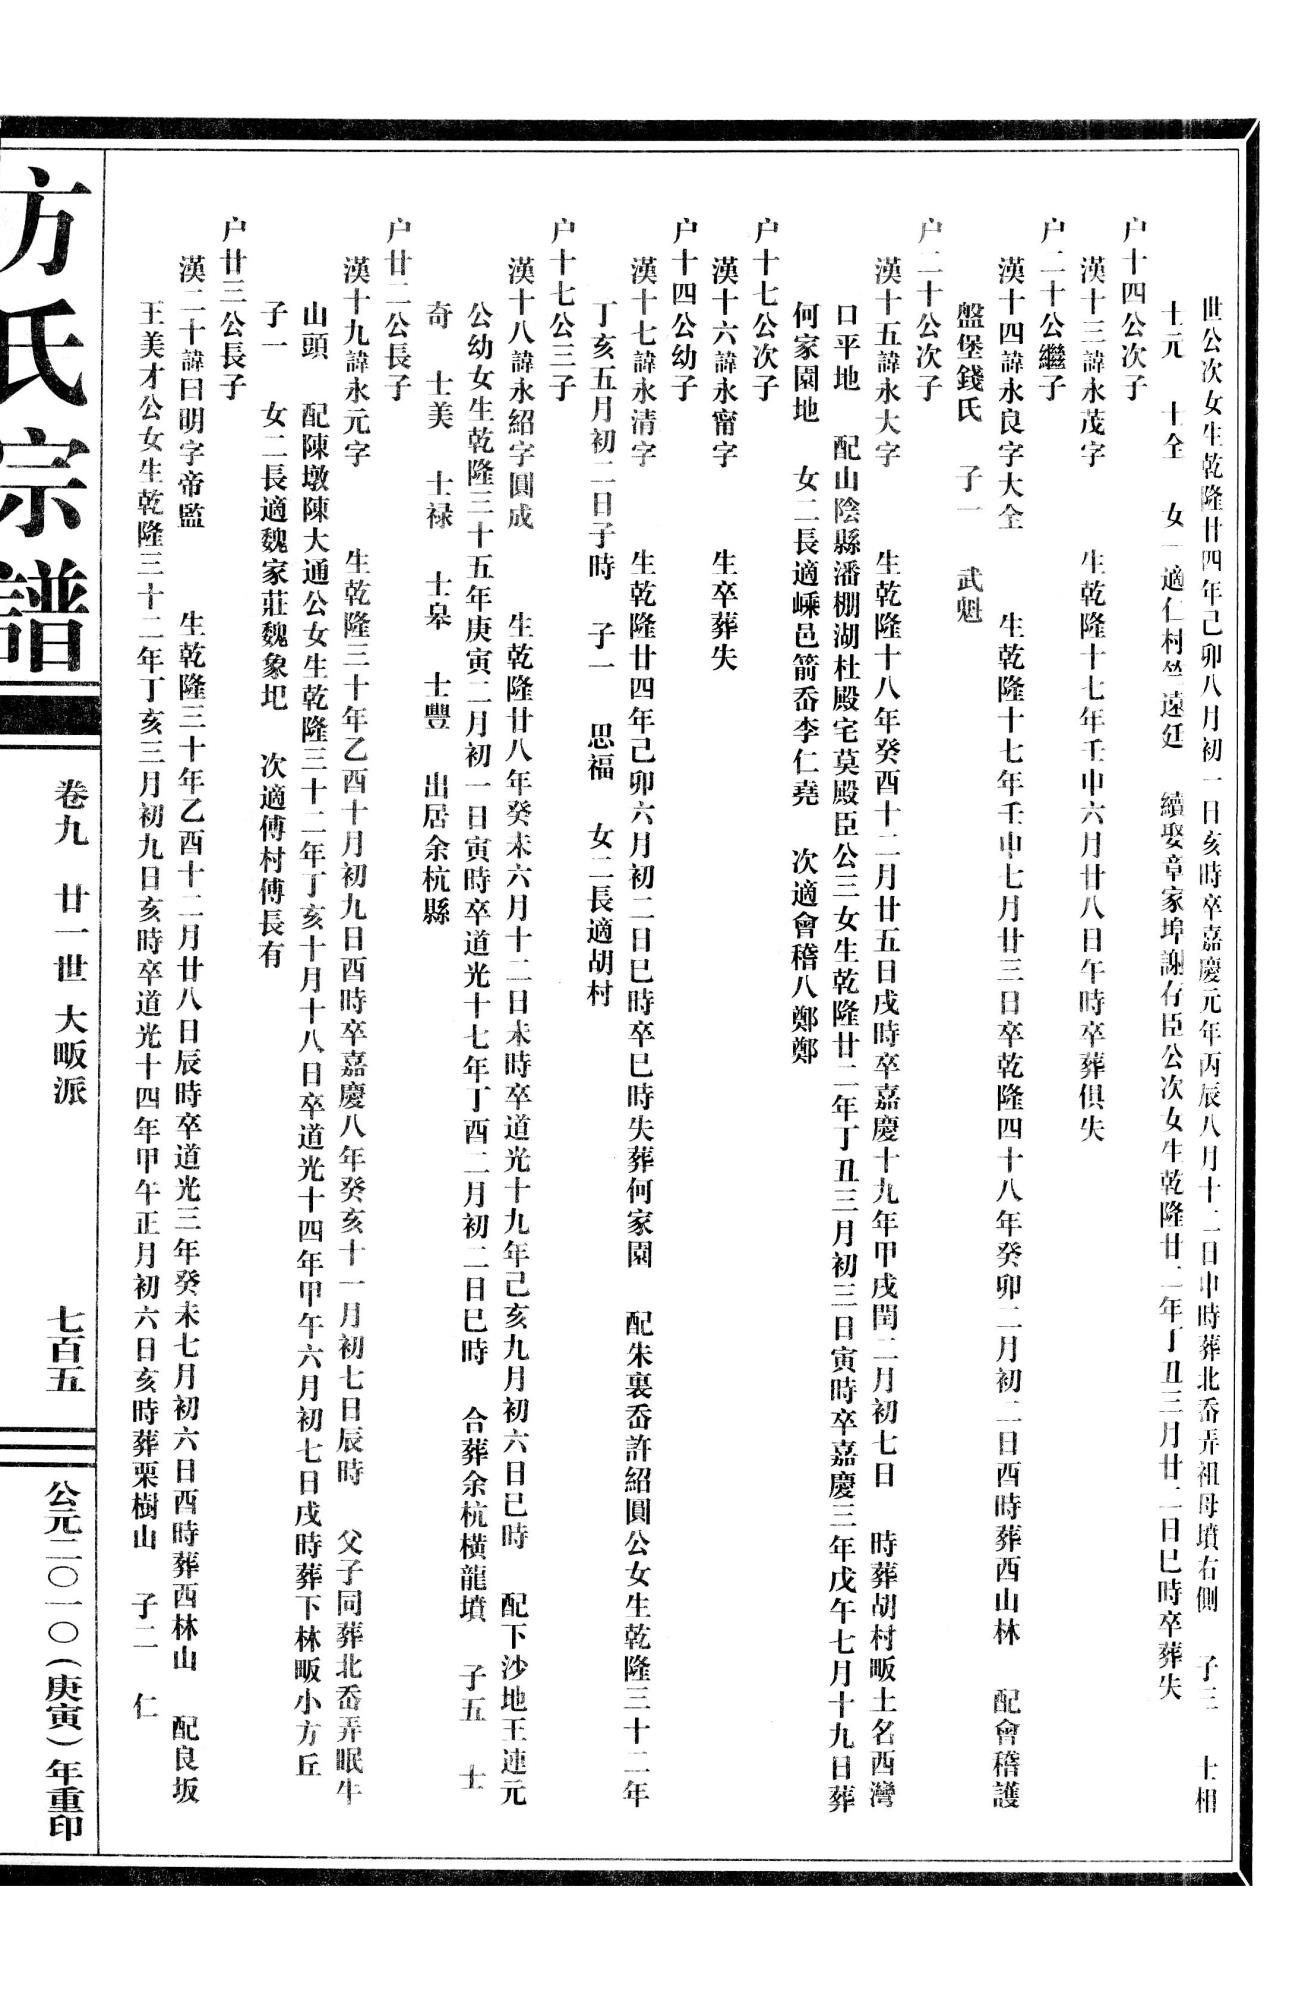 世公次女生乾隆廿四年己卯八月初一日亥時卒嘉慶元年丙辰八月十二日申時葬北岙弄祖母墳右側　子三　士相
士元　士全　女一適仁村竺遠廷　續娶章家埠謝存臣公次女生乾隆廿二年丁丑三月廿二日巳時卒葬失
户十四公次子
漢十三諱永茂字　　生乾隆十七年壬申六月廿八日午時卒葬俱失
户二十公繼子
漢十四諱永良字大全　　生乾隆十七年壬申七月廿三日卒乾隆四十八年癸卯二月初二日酉時葬西山林　配會稽護
盤堡錢氏　子一　武魁
户二十公次子
漢十五諱永大字　　生乾隆十八年癸酉十二月廿五日戌時卒嘉慶十九年甲戌閏二月初七日　時葬胡村畈土名西灣
口平地　配山陰縣潘棚湖杜殿宅莫殿臣公三女生乾隆廿二年丁丑三月初三日寅時卒嘉慶三年戊午七月十九日葬
何家園地　女二長適嵊邑箭岙李仁堯　次適會稽八鄭鄭
户十七公次子
漢十六諱永甯字　　生卒葬失
户十四公幼子
漢十七諱永清字　　生乾隆廿四年己卯六月初二日巳時卒巳時失葬何家園　配朱裏岙許紹圓公女生乾隆三十二年
丁亥五月初二日子時　子一　思福　女二長適胡村
户十七公三子
漢十八諱永紹字圓成　　生乾隆廿八年癸未六月十二日未時卒道光十九年己亥九月初六日巳時　配下沙地王連元
公幼女生乾隆三十五年庚寅二月初一日寅時卒道光十七年丁酉二月初二日巳時　合葬余杭橫龍墳　子五　士
奇　士美　士禄　士皋　士豐　出居余杭縣
户廿二公長子
漢十九諱永元字　　生乾隆三十年乙酉十月初九日酉時卒嘉慶八年癸亥十一月初七日辰時　父子同葬北岙弄眠牛
山頭　配陳墩陳大通公女生乾隆三十二年丁亥十月十八日卒道光十四年甲午六月初七日戌時葬下林畈小方丘
子一　女二長適魏家莊魏象圯　次適傅村傅長有
户廿三公長子
漢二十諱曰明字帝監　　生乾隆三十年乙酉十二月廿八日辰時卒道光三年癸未七月初六日酉時葬西林山　配良坂
王美才公女生乾隆三十二年丁亥三月初九日亥時卒道光十四年甲午正月初六日亥時葬栗樹山　子二　仁
方氏宗譜
卷九　廿一世　大畈派
七百五
公元二〇一〇（庚寅）年重印